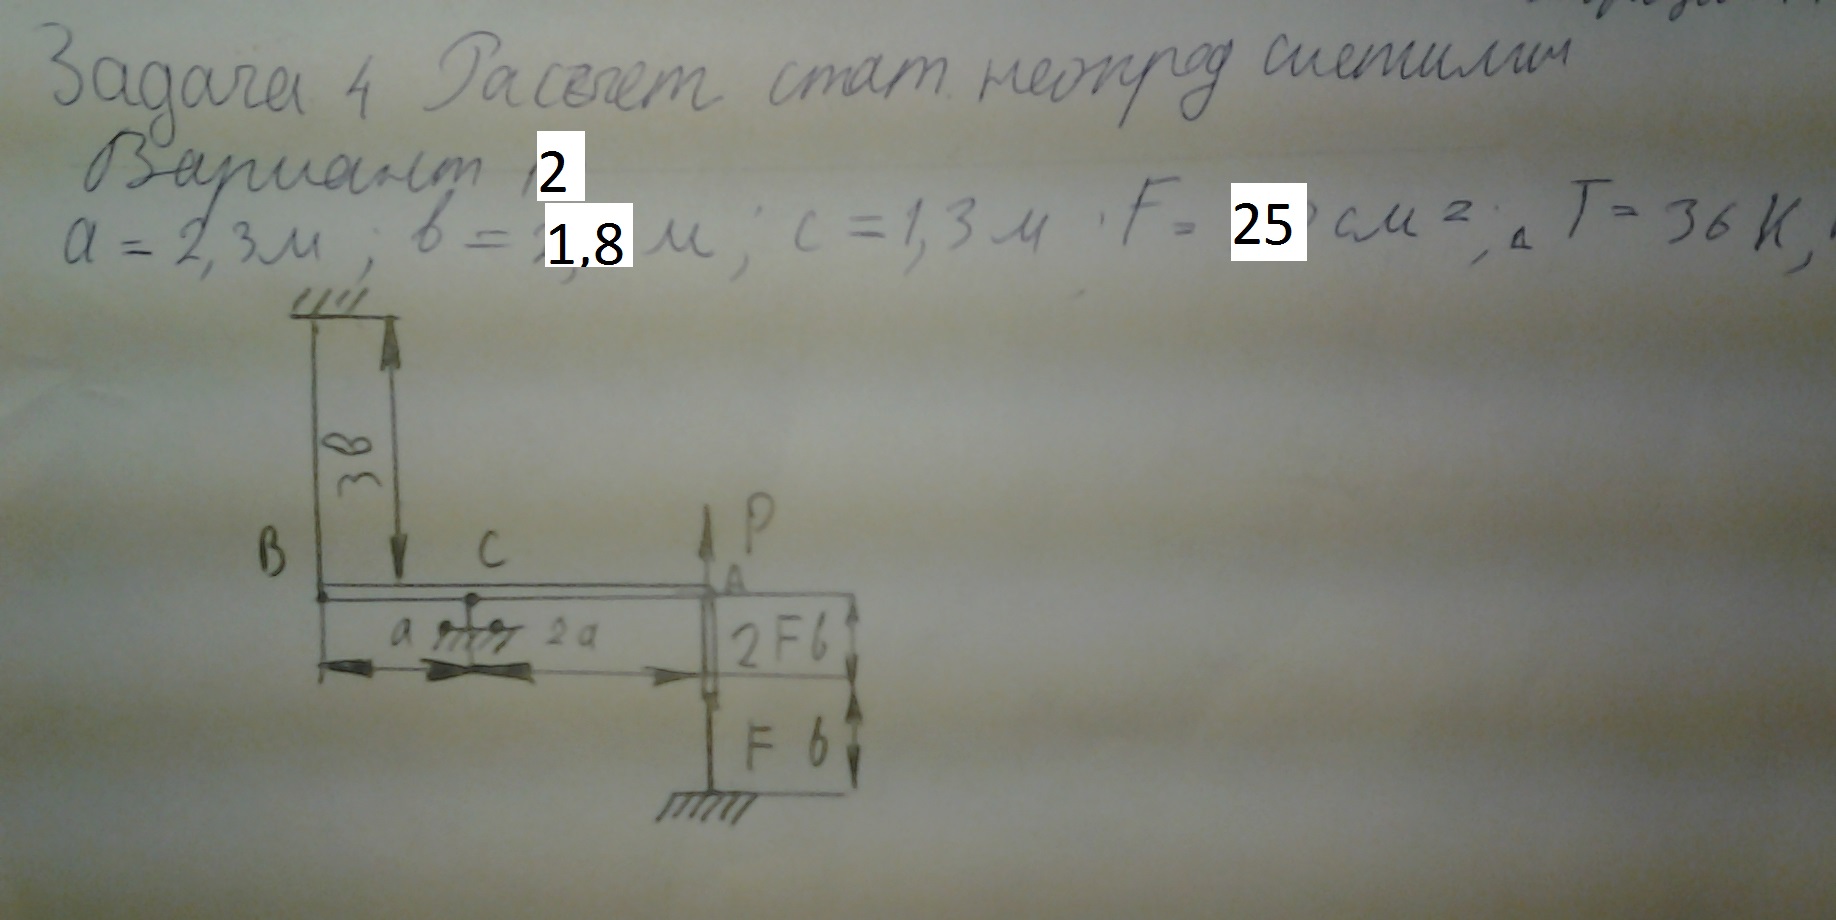 Задача 4 Расчет стат неопред системы
Вариант 2
a = 2,3 м ; в = 1,8 м ; с = 1,3 м F = 25 см 2 ; Δ T = 36 К,
3в
B
C
P
A
a
2a
2F в
F в